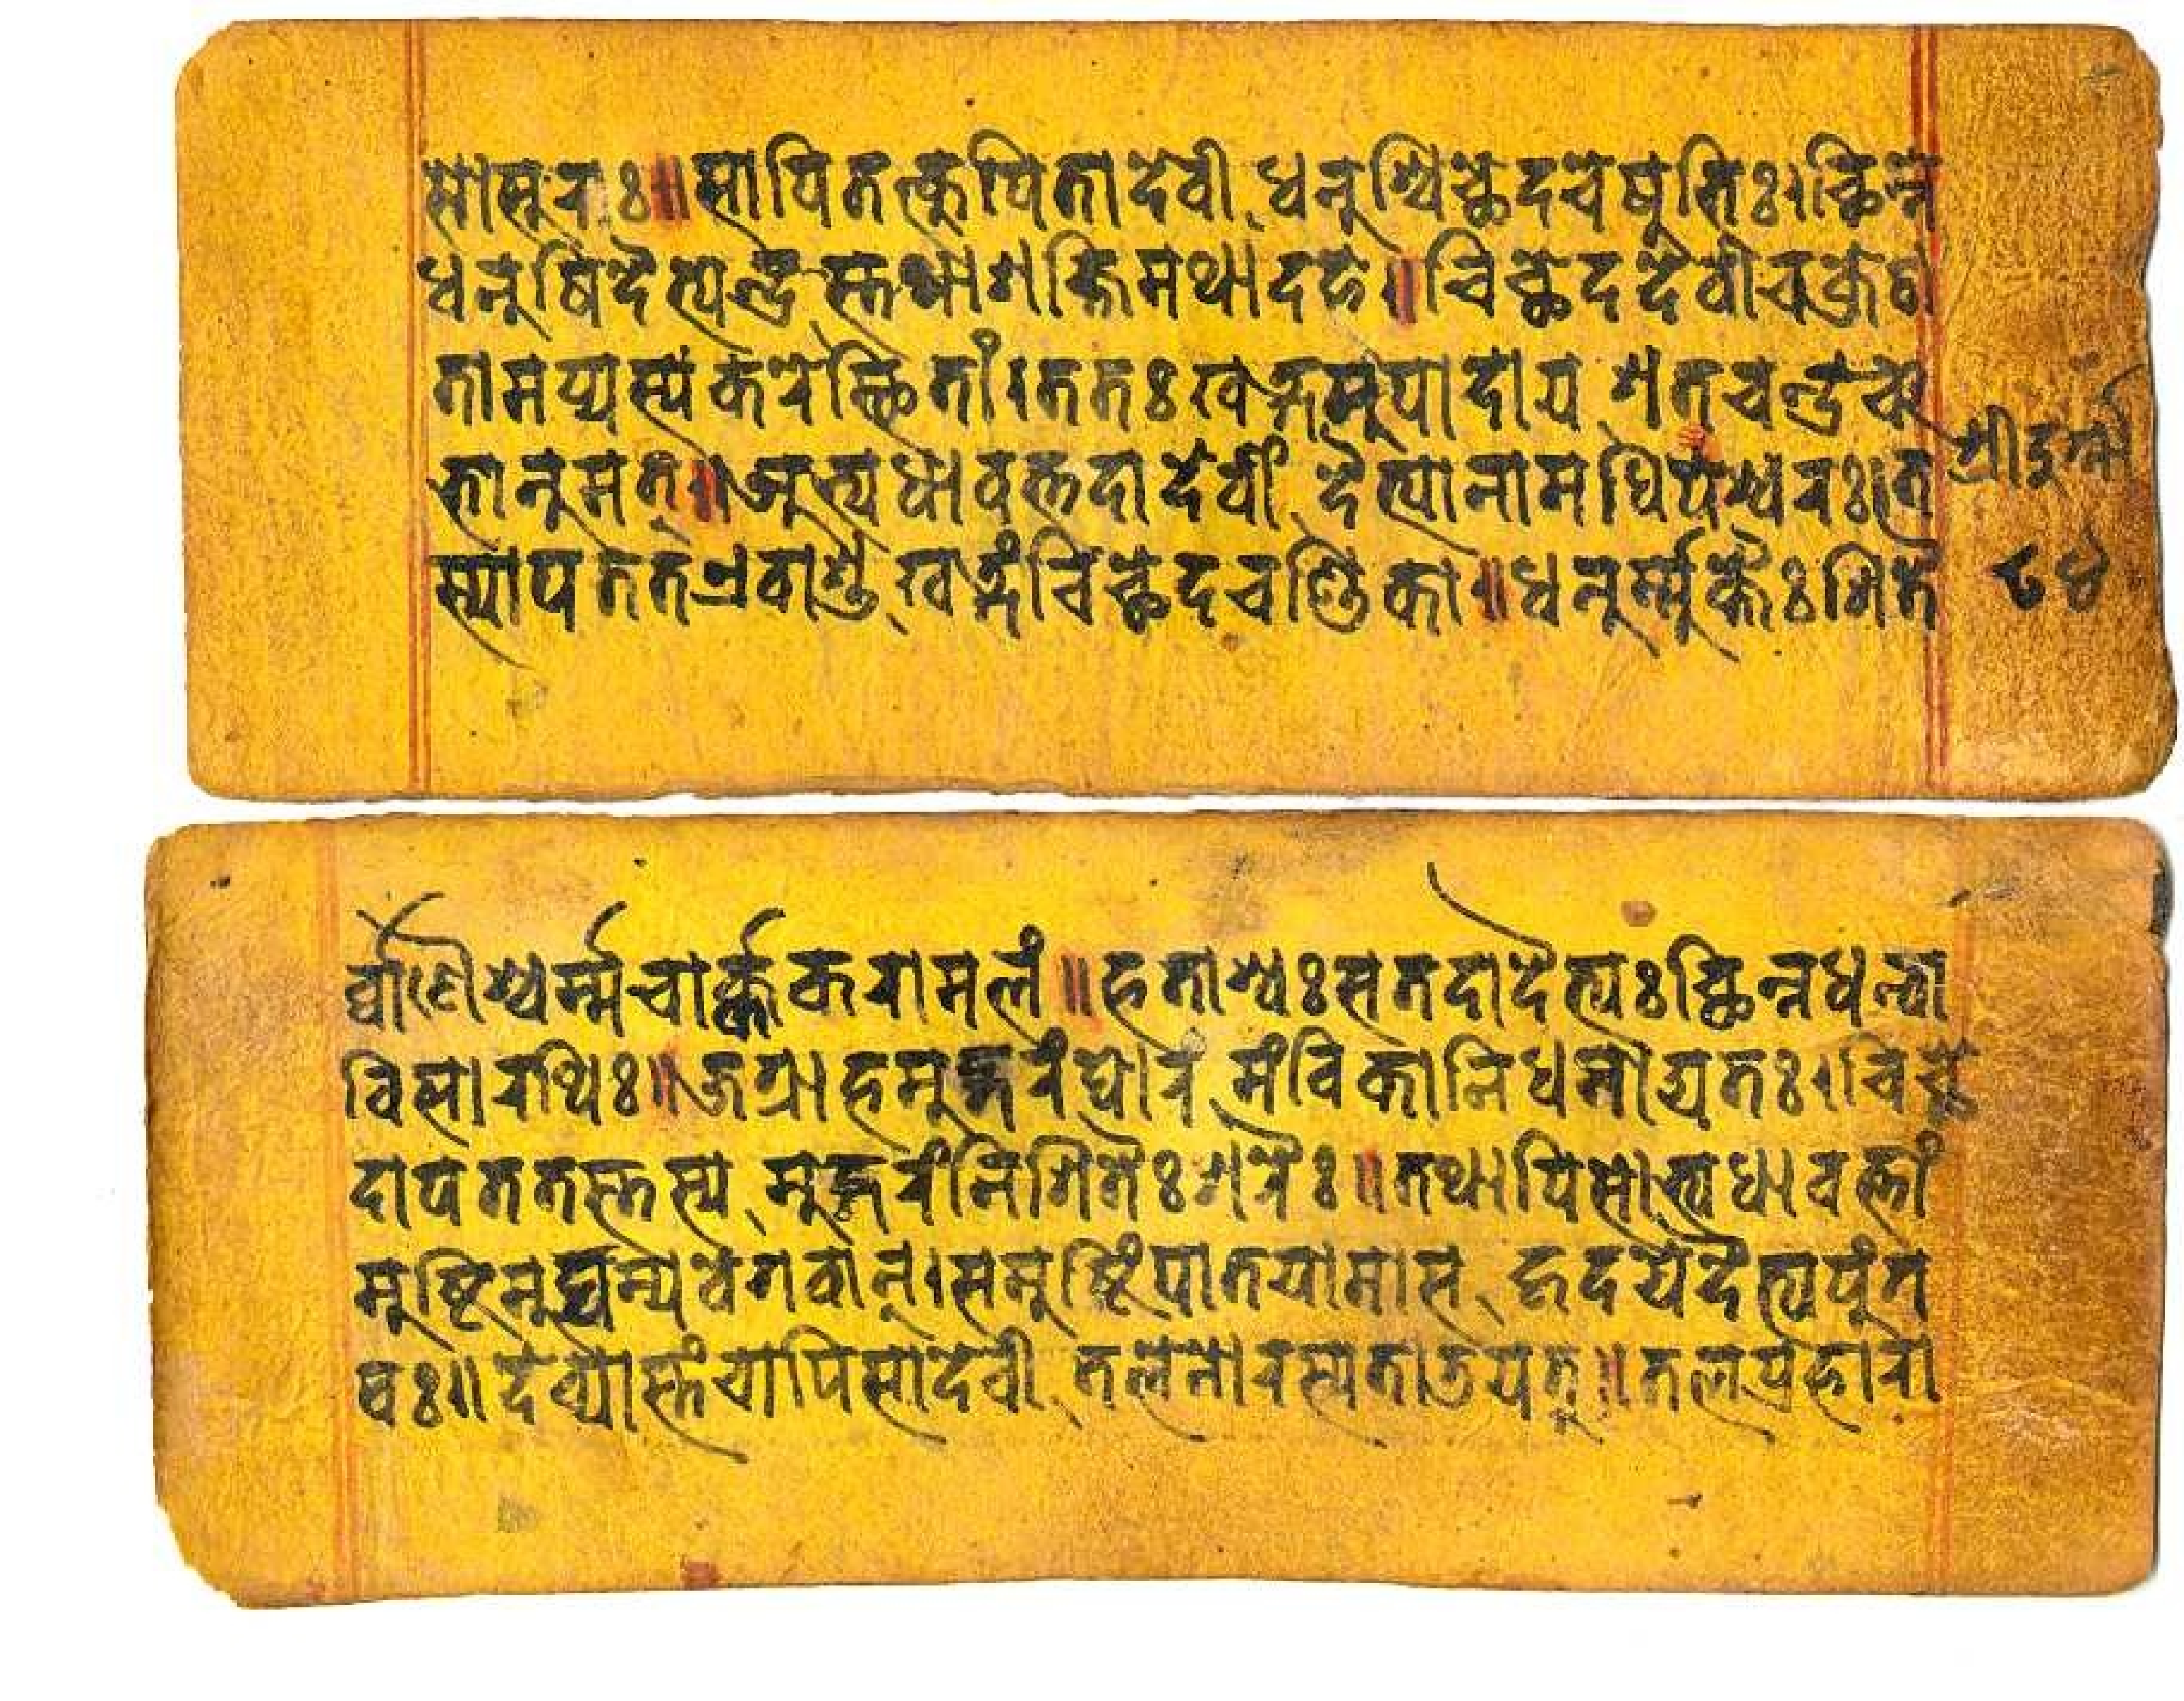 सासुरः॥सापितत्कुपितादेवी धनुश्चिच्छेदचेषुभिः।च्छिन्ने
धनुषिदैत्येन्द्रस्तथाशक्तिमथादद॥चिच्छेददेवीचक्रेण
तामप्यस्यकरेस्थितां।ततःखड्गमुपादाय शतचन्द्रञ्च
भानुमत्॥अभ्यधावत्तदादेवीं दैत्यानामधिपेश्वरः।त
स्यापततएवाशु खड्गंचिच्छेदचण्डिका॥धनुर्म्मुक्तैःशितै
श्रीदुर्गा
८४
र्ब्बाणैश्चर्म्मचार्क्ककरामलं॥हताश्वःसतदादैत्यःच्छिन्नधन्वा
विसारथिः॥जग्राहमुद्गरंघोर मंविकानिधनोद्यतः।चिच्छे
दापततस्तस्य मुद्गरंनिशितैःशरैः॥तथापिसोभ्यधावत्तां
मुष्टिमुद्यम्यवेगवान्।समुष्टिंपातयामास हृदयेदैत्यपुंग
वः॥देव्यास्तंचापिसादेवी तलेनोरस्यताडयत्॥तलप्रहारा